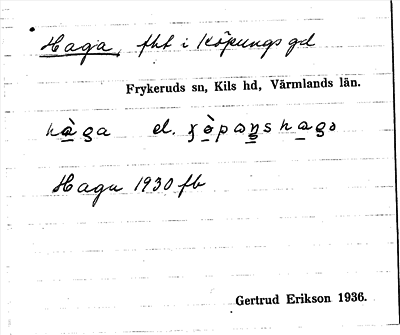 Haga, fht i Köpungs gd
Frykeruds sn, Kils hd, Värmlands län.
hàga el. χòpaŋshaga
Haga 1930 fb
Gertrud Erikson 1936.